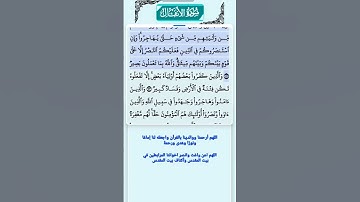 سورة الأنفال
مِّن وَلَٰيَتِهِم مِّن شَيْءٍ حَتَّىٰ يُهَاجِرُوا۟ وَإِنِ
ٱسْتَنصَرُوكُمْ فِى ٱلدِّينِ فَعَلَيْكُمُ ٱلنَّصْرُ إِلَّا عَلَىٰ
قَوْمٍۭ بَيْنَكُمْ وَبَيْنَهُم مِّيثَٰقٌ وَٱللَّهُ بِمَا تَعْمَلُونَ بَصِيرٌ
وَٱلَّذِينَ كَفَرُوا۟ بَعْضُهُمْ أَوْلِيَآءُ بَعْضٍ إِلَّا تَفْعَلُوهُ
تَكُن فِتْنَةٌ فِى ٱلْأَرْضِ وَفَسَادٌ كَبِيرٌ وَٱلَّذِينَ
ءَامَنُوا۟ وَهَاجَرُوا۟ وَجَٰهَدُوا۟ فِى سَبِيلِ ٱللَّهِ وَٱلَّذِينَ
ءَاوَوا۟ وَّنَصَرُوٓا۟ أُو۟لَٰٓئِكَ هُمُ ٱلْمُؤْمِنُونَ حَقًّا لَّهُم مَّغْفِرَةٌ
اللهم أرحمنا ووالدينا بالقرآن واجعله لنا إماما
ونورا وهدى ورحمة
اللهم اعن وثبت وانصر اخواننا المرابطين في
بيت المقدس وأكناف بيت المقدس